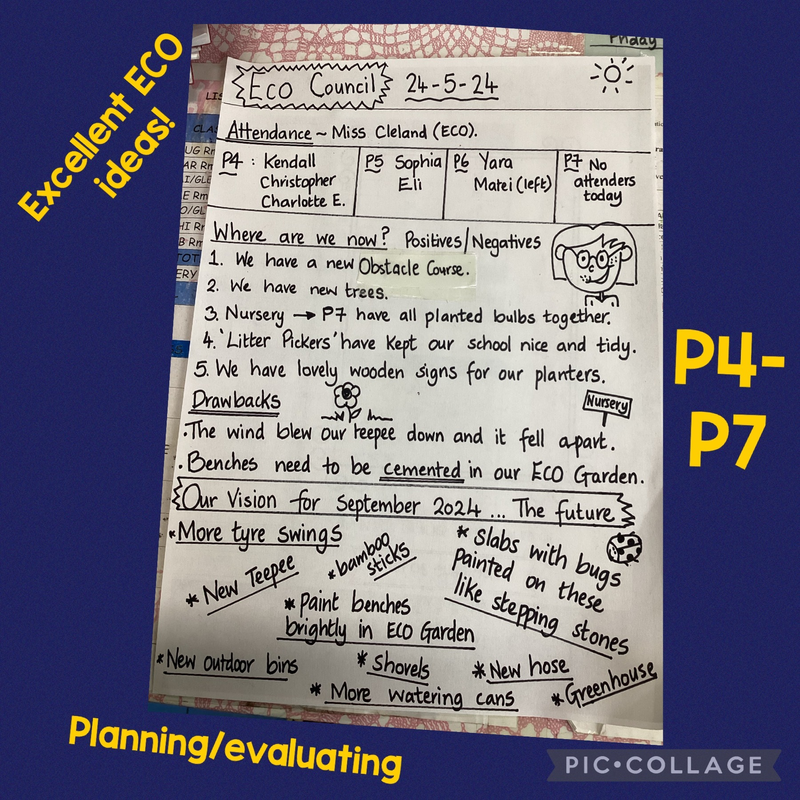 Excellent ECO
ideas!
Friday
Eco Council 24-5-24
Attendance ~ Miss Cleland (ECO).
P4 : Kendall
Christopher
Charlotte E.
P5 Sophia
Eli
P6 Yara
Matei (left)
P7 No
attenders
today
Where are we now? Positives/Negatives
1. We have a new Obstacle Course.
2. We have new trees.
3. Nursery → P7 have all planted bulbs together.
4. 'Litter Pickers' have kept our school nice and tidy.
5. We have lovely wooden signs for our planters.
Drawbacks
Nursery
.The wind blew our teepee down and it fell apart.
.Benches need to be cemented in our ECO Garden.
Our Vision for September 2024 ... The future
*More tyre swings
* New Teepee
*bamboo
sticks
* Slabs with bugs
painted on these
like stepping stones
* Paint benches
brightly in ECO Garden
*New outdoor bins
* Shovels
* New hose
* More watering cans
*Greenhouse
P4-
P7
Planning/evaluating
PIC•COLLAGE